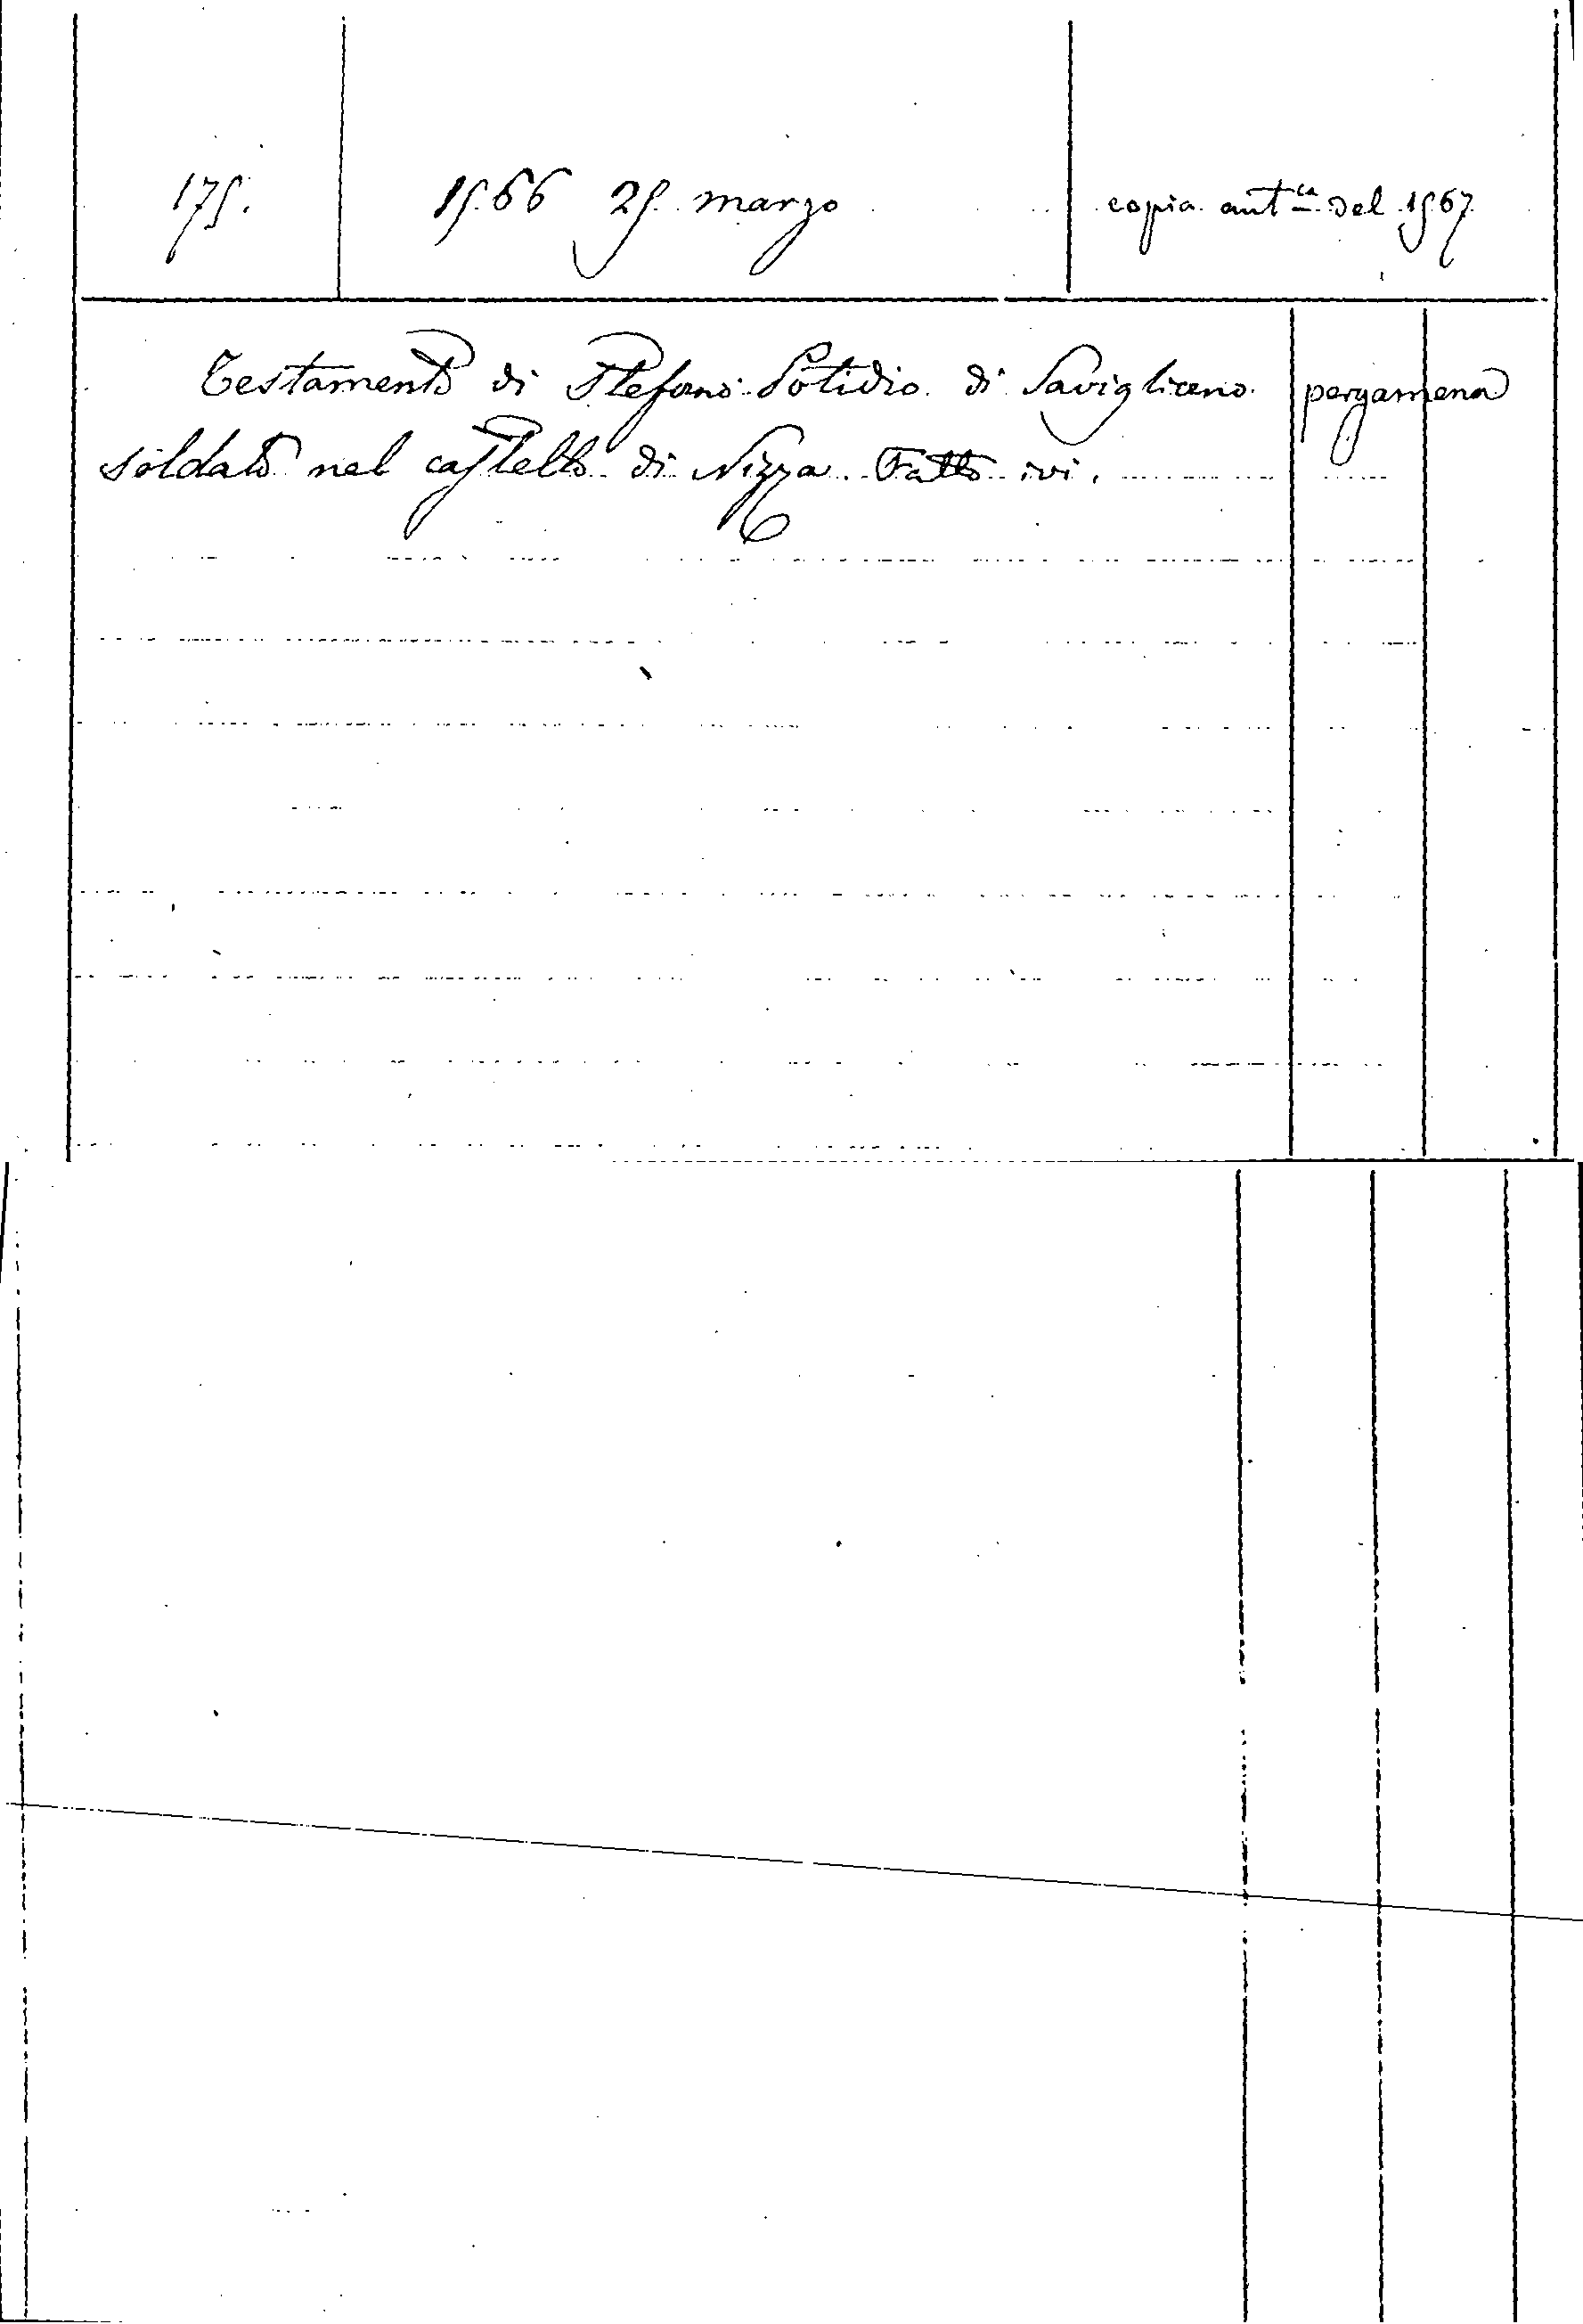 175. 1566 25 marzo copia aut.ca del 1567
Testamento di Stefano Solidio di Savigliano pergamena
soldato nel castello di Nizza. Fatto ivi.